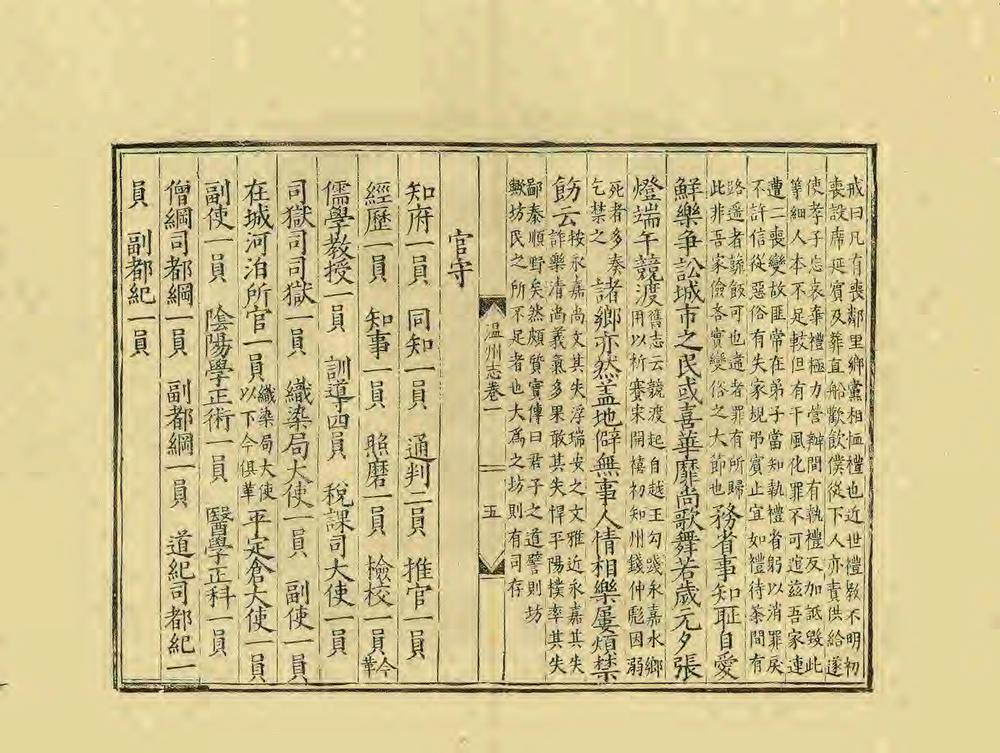 戒曰凡有喪鄰里鄉黨相恤禮也近世禮教不明初
喪設席延賓及葬直船歡飲僕從下人亦責供給遂
使孝子忘哀葬禮極力營辦間有執禮反加詆毀此
等細人本不足較但有干風化罪不可逭兹吾家連
遭二喪變故匪常在弟子當知執禮省躬以消罪戾
不許信從惡俗有失家規弔賓止宜如禮待茶間有
路遥者蔬飯可也違者罪有所歸
此非吾家儉吝實變俗之大節也務省事知耻自愛
鮮樂争訟城市之民或喜華靡尚歌舞若歲元夕張
燈端午競渡舊志云競渡起自越王勾踐永嘉水鄉
用以祈賽宋開禧初知州錢仲彪因弱
死者多奏
乞禁之諸鄉亦然盖地僻無事人情相樂屢煩禁
飭云按永嘉尚文其失浮瑞安之文雅近永嘉其失
詐樂清尚義氣多果敢其失悍平陽樸率其失
鄙泰順野矣然頗質實傳曰君子之道譬則坊
歟坊民之所不足者也大為之坊則有司存
温州志卷一
五
官守
知府一員 同知一員 通判二員 推官一員
經歷一員 知事一員 照磨一員 檢校一員今革
儒學教授一員 訓導四員 稅課司大使一員
司獄司司獄一員 織染局大使一員 副使一員
在城河泊所官一員織染局大使以下今俱革平定倉大使一員
副使一員 陰陽學正術一員 醫學正科一員
僧綱司都綱一員 副都綱一員 道紀司都紀一
員 副都紀一員